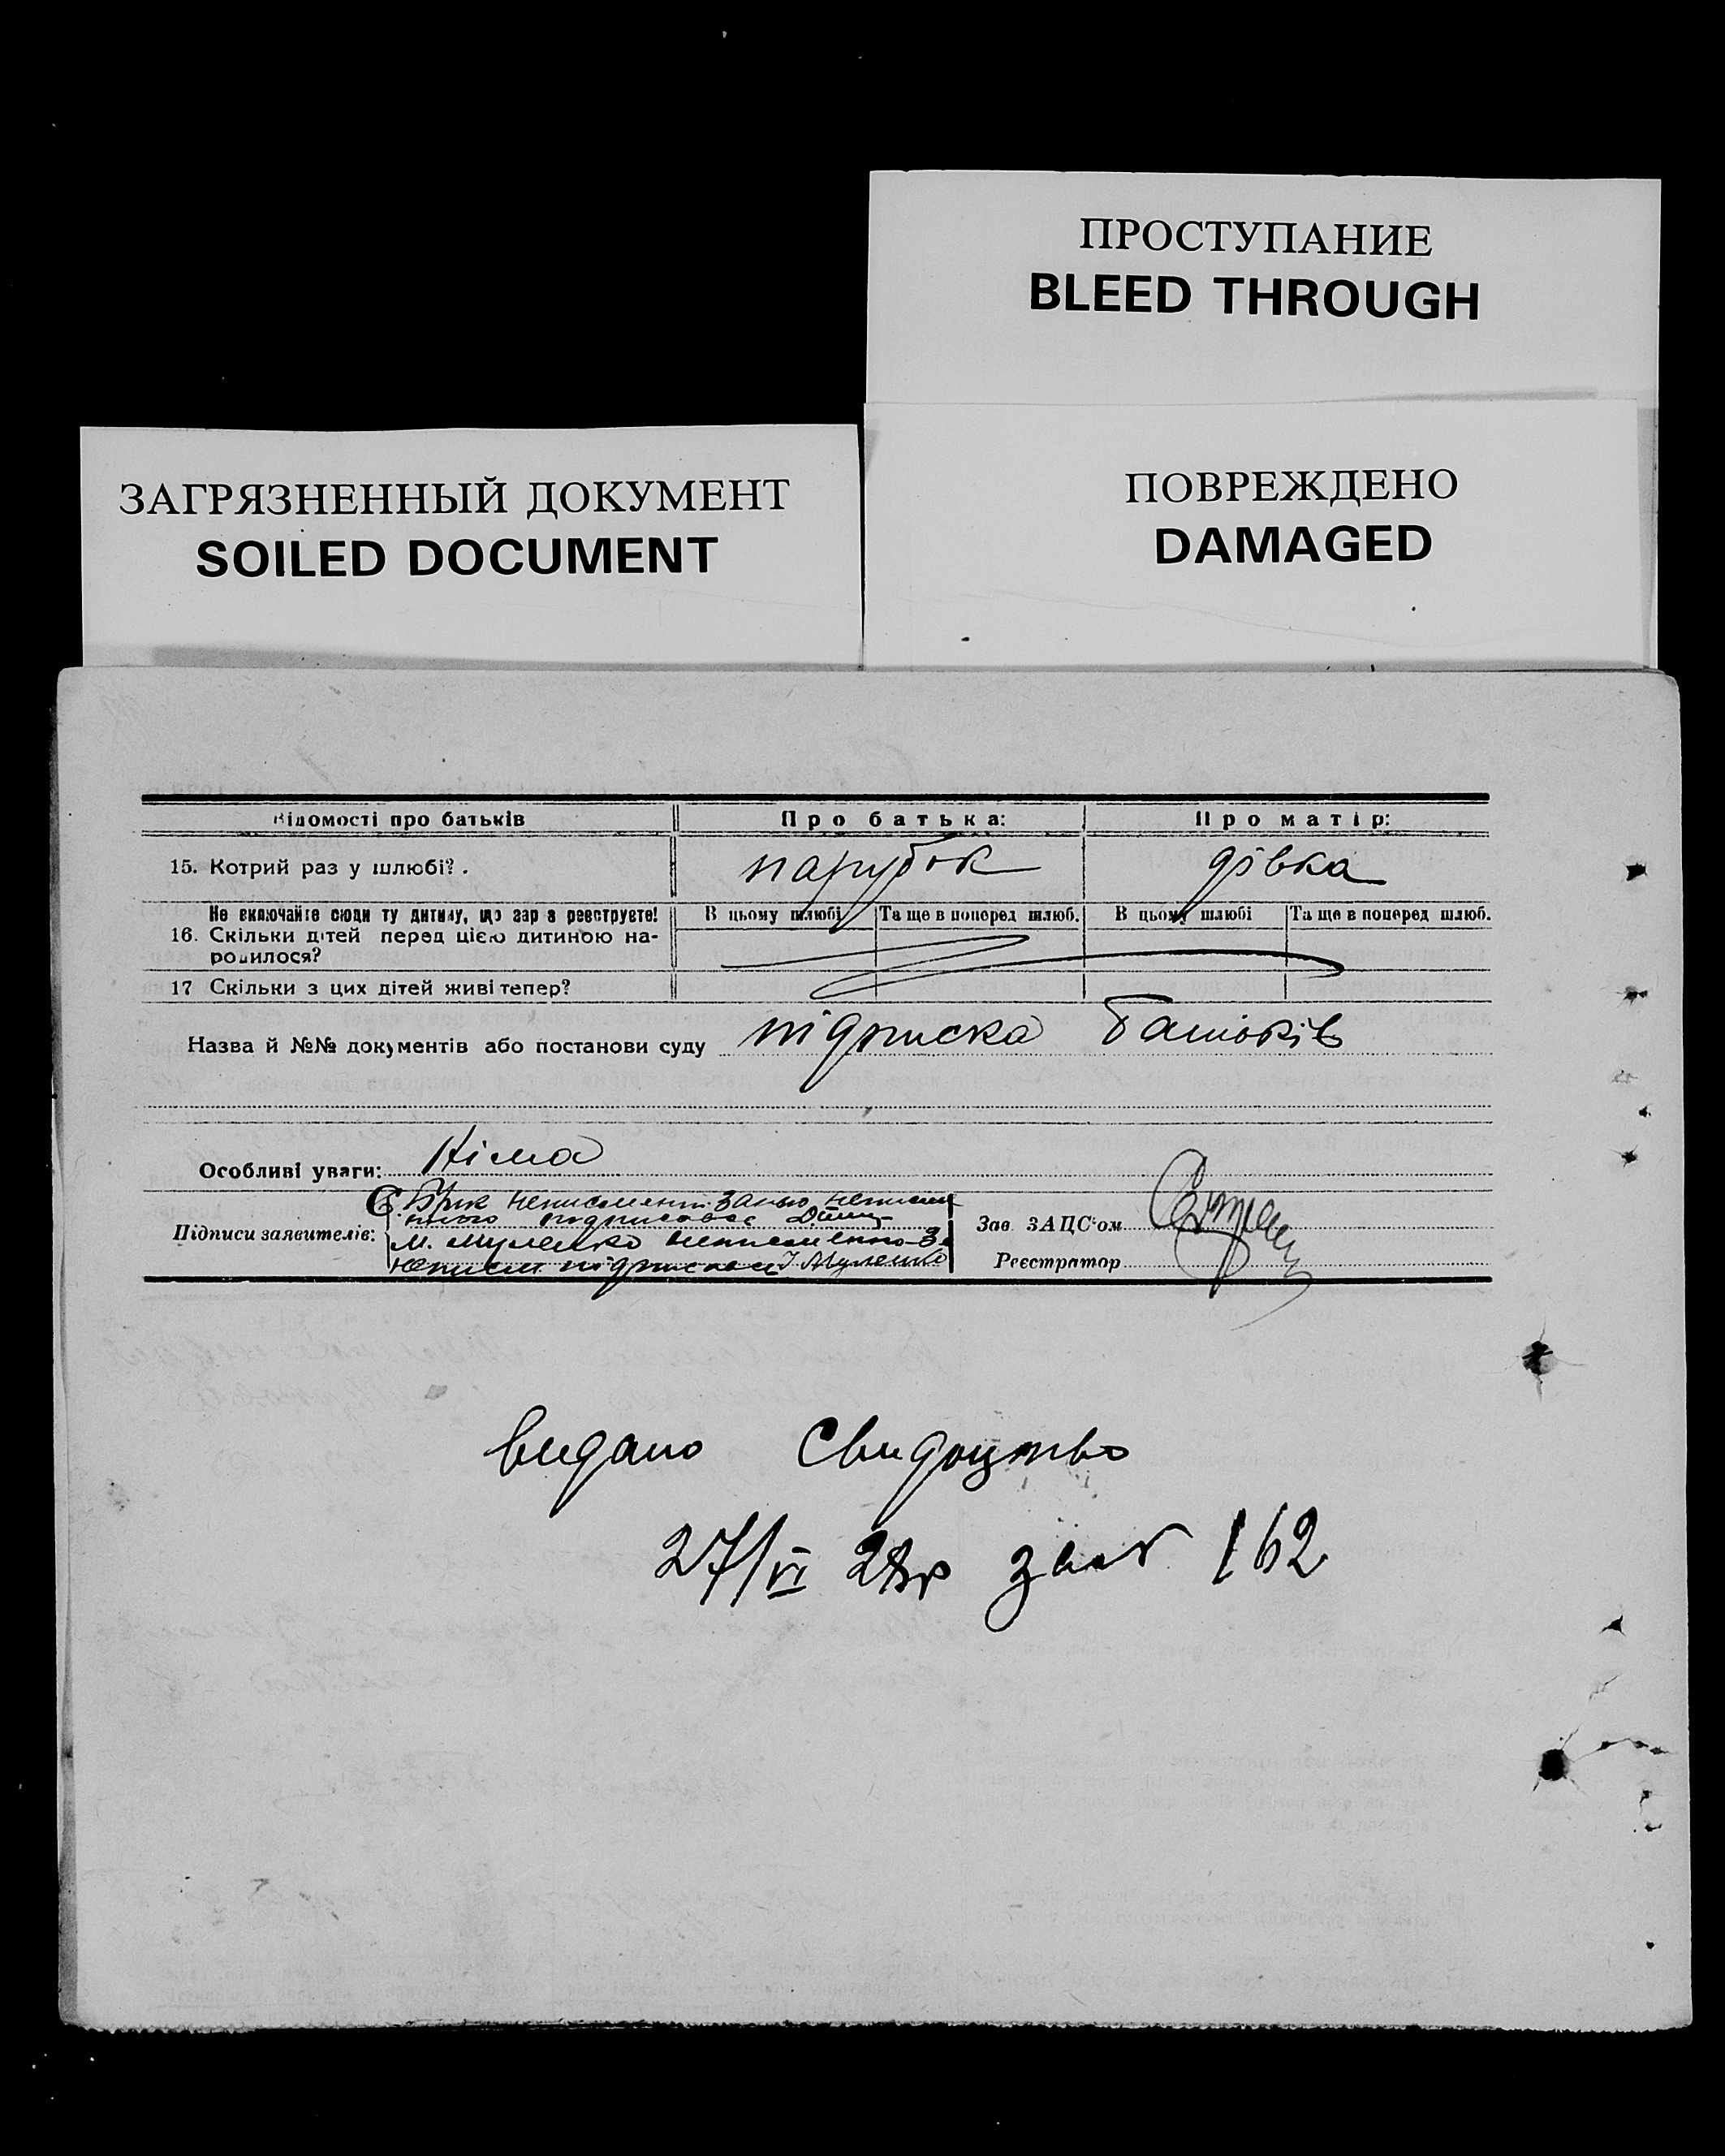 ПРОСТУПАНИЕ
BLEED THROUGH
ЗАГРЯЗНЕННЫЙ ДОКУМЕНТ
SOILED DOCUMENT
ПОВРЕЖДЕНО
DAMAGED
Відомості про батьків Про батька: Про матір:
15. Котрий раз у шлюбі? . парубок дівка
Не включайте сюди ту дитину, що зар з реєструєте! В цьому шлюбі Та ще в поперед шлюб. В цьому шлюбі Та ще в поперед шлюб.
16. Скільки дітей перед цією дитиною на-
родилося?
17 Скільки з цих дітей живі тепер?
Назва й №№ документів або постанови суду підписка батьків
Особливі уваги: Німа
Підписи заявителів:
М. Муленко
підписав І Муленко
Зав ЗАЦС'ом
Реєстратор
видано Свидоцтво
27/VI 28р 162